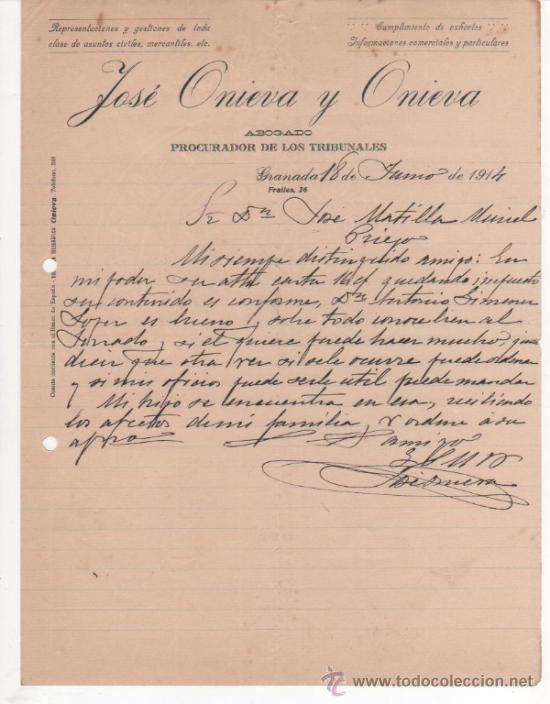 Representaciones y gestiones de toda
clase de asuntos civiles, mercantiles, etc.
Cumplimiento de exhortos
Informaciones comerciales y particulares
José Onieva y Onieva
ABOGADO
PROCURADOR DE LOS TRIBUNALES
Granada 18 de Junio de 1914
Frailes, 26
Cuenta corriente con el Banco de España Onieva Teléfono,
Sr Dn José Matilla
Priego
Mi siempre distinguido amigo: En
mi poder su atta carta 16 cf quedando impuesto
su contenido es conforme, Dn Antonio Jimenez
Lopez es bueno, sobre todo conoce bien al
Jurado, y si él quiere puede hacer mucho,
decir que otra vez si se le ocurre puede
y si mis oficios puede serle util puede mandar
Mi hijo se encuentra en esa, recibiendo
los afectos de mi familia, y ordene á su
afmo amigo